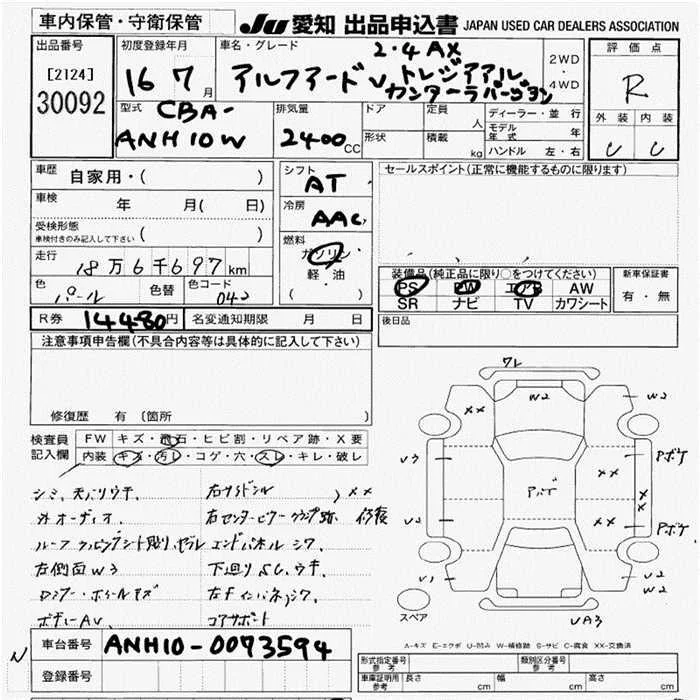 車内保管・守衛保管
JU 愛知 出品申込書 JAPAN USED CAR DEALERS ASSOCIATION
出品番号
[2124]
30092
初度登録年月
16 7月
車名・グレード
2.4AX
アルファードV トレジアアル
カンターラバージョン
2WD
・
4WD
評価点
R
外装 内装
型式
CBA-
ANH10W
排気量
2400 CC
ドア
形状
定員 人
積載 kg
ディーラー・並行
モデル年式 年
ハンドル 左・右
車歴 自家用・( )
車検 年 月( 日)
受検形態
車検付きのみ記入して下さい ( )
走行 18万6千697km
色 パール 色替 色コード 042
シフト AT
冷房 AAC
燃料
ガソリン
・
軽・油
( )
セールスポイント(正常に機能するものに限ります)
装備品(純正品に限り○をつけてください)
PS PW エアB AW
SR ナビ TV カワシート
新車保証書
有・無
R券 14480円 名変通知期限 月 日
後日品
注意事項申告欄(不具合内容等は具体的に記入して下さい)
修復歴 有 (箇所
検査員
記入欄
FW キズ・飛石・ヒビ割・リペア跡・X要
内装 キズ・汚レ・コゲ・穴・スレ・キレ・破レ
シミ、天バリウキ、
外オーディオ、
左側面W3
ボディーAU、
右サイドシル
、XX
下廻りSC、ウキ、
コアサポート
ワレ
XX
W2
W2
U3
Pボケ
XX
X
X
XX
U2
Pボケ
U1
U2
W2
UA3
スペア
A-キズ E-エクボ U-凹み W-補修跡 S-サビ C-腐食 XX-交換済
N
車台番号 ANH10-0073594
登録番号
形式指定番号
参考
類別区分番号
参考
車庫証明用
参考
長さ cm 幅 cm 高さ cm